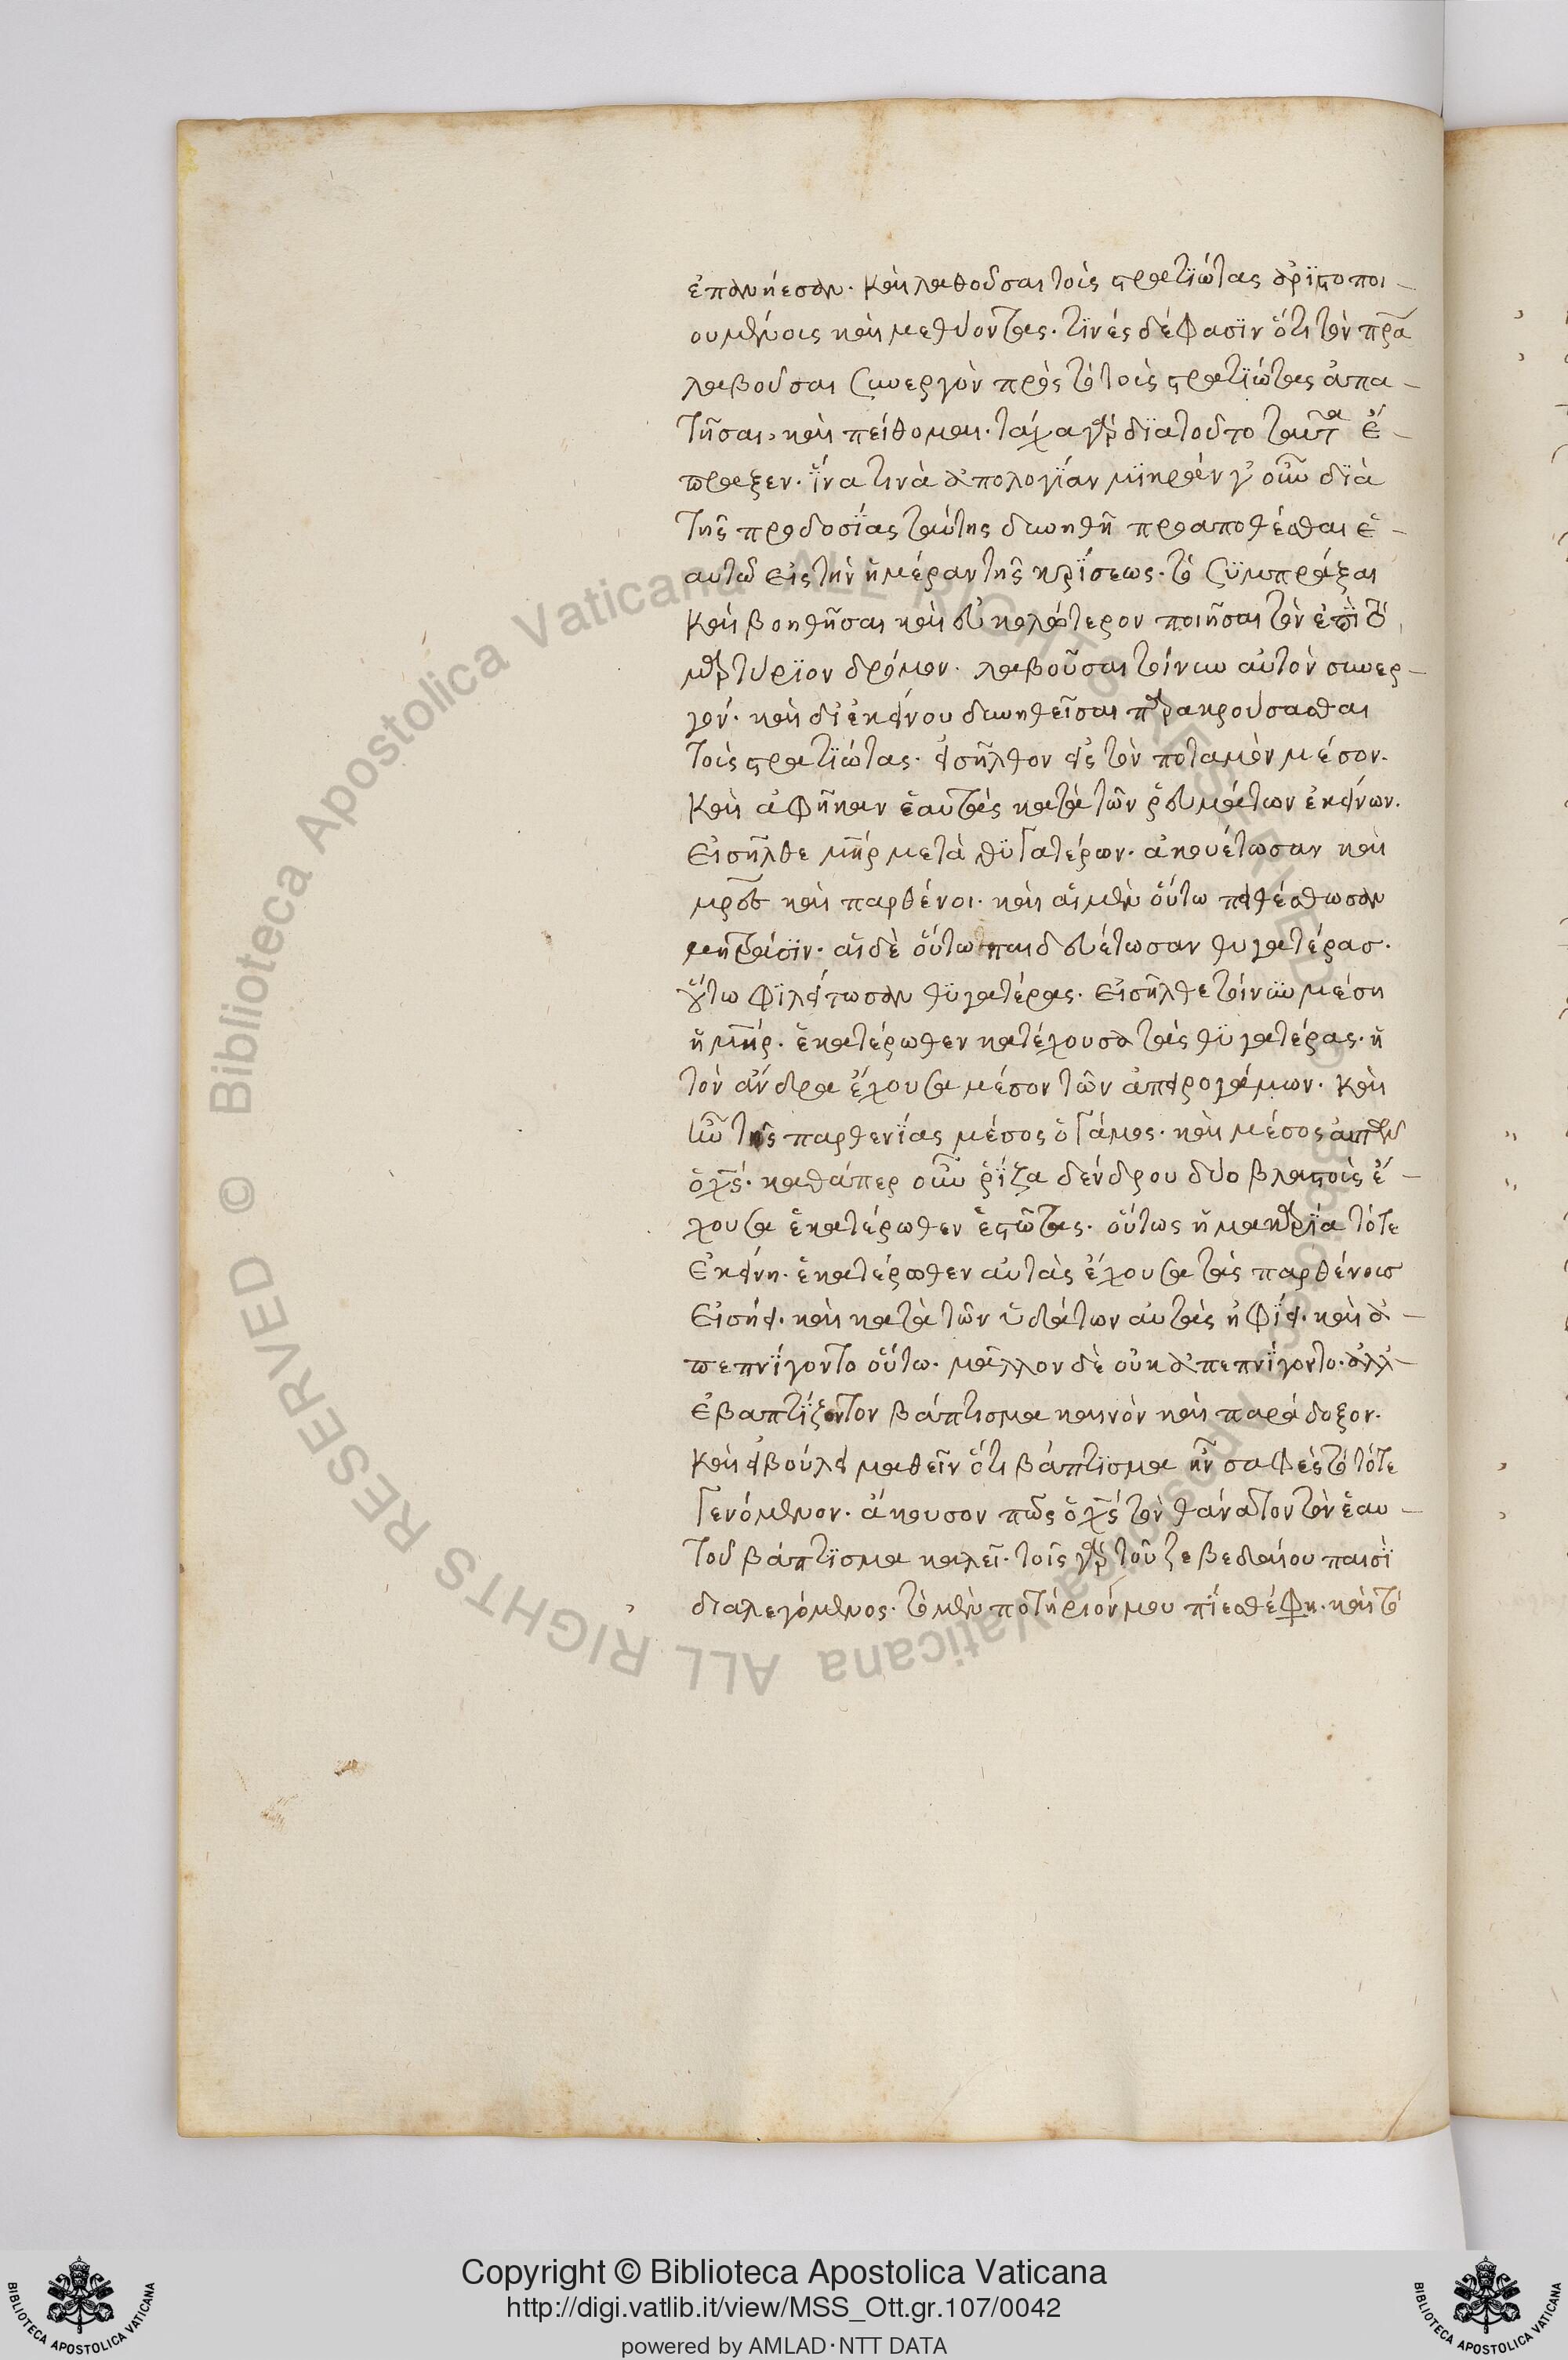 ἐπανήεσαν. καὶ λαθοῦσαι τοὺς στρατϊώτας ἀρϊστοποι –
ουμένους καὶ μεθύοντας. τϊνὲς δέ φασϊν ὅτι τὸν πρ̅α
λαβοῦσαι συνεργὸν πρὸς τὸ τοὺς στρατϊώτας ἀπα –
τῆσαι, καὶ πείθομαι. τάχα γὰρ δϊατοῦτο ταῦτα ἔ –
πραξεν. ἵνα τινὰ ἀπολογΐαν μϊκρὰν γ' οὖν δϊὰ
τῆς προδοσΐας ταύτης δυνηθῆ προαποθέσθαι ἑ –
αυτῶ εἰς τὴν ἡμέραν τῆς κρΐσεως. τὸ συμπρᾶξαι
καὶ βοηθῆσαι καὶ εὐκολώτερον ποιῆσαι τὸν ἐπὶ τὸ
μαρτύρϊον δρόμον. λαβοῦσαι τοίνυν αὐτὸν συνερ –
γόν. καὶ δι' ἐκείνου δυνηθεῖσαι παρακρούσασθαι
τοὺς στρατϊώτας. εἰσῆλθον εἰς τὸν ποταμὸν μέσον.
καὶ ἀφῆκαν ἑαυτὰς κατὰ τῶν ῥευμάτων ἐκείνων.
Εἰσῆλθε μ̅η̅ρ μετὰ θϋγατέρων. ἀκουέτωσαν καὶ
μρ̅ες καὶ παρθένοι. καὶ αἱ μὲν οὕτω πειθέσθωσαν
μητράσϊν. αἱ δὲ οὕτω παιδευέτωσαν θυγατέρασ.
οὕτω φϊλείτωσαν θϋγατέρας. Εἰσῆλθε τοίνυν μέση
ἡ μ̅η̅ρ. ἑκατέρωθεν κατέχουσα τὰς θϋγατέρας. ἡ
τὸν ἄνδρα ἔχουσα μέσον τῶν ἀπειρογάμων. καὶ
ἦν τῆς παρθενΐας μέσος ὁ γάμος. καὶ μέσος αὐτῶν
ὁ χ̅ς. καθάπερ οὖν ῥΐζα δένδρου δύο βλαστοὺς ἔ –
χουσα ἑκατέρωθεν ἑστῶτας. οὕτως ἡ μακαρΐα τότε
ἐκείνη. ἑκατέρωθεν αὐτὰς ἔχουσα τὰς παρθένουσ
εἰσήει. καὶ κατὰ τῶν ὑδάτων αὐτὰς ἠφΐει. καὶ ἀ –
πεπνΐγοντο οὕτω. μᾶλλον δὲ οὐκ ἀπεπνΐγοντο. ἀλλ' –
ἐβαπτΐζοντον βάπτισμα καινὸν καὶ παράδοξον.
καὶ εἰ βούλει μαθεῖν ὅτι βάπτϊσμα ἦν σαφὲς τὸ τότε
γενόμενον. ἄκουσον πῶς ὁ χ̅ς τὸν θάνατον τὸν ἑαυ –
τοῦ βάπτϊσμα καλεῖ. τοῖς γὰρ τοῦ ζεβεδαίου παισῒ
διαλεγόμενος. τὸ μὲν ποτήριόν μου πΐεσθέ φη. καὶ τὸ
Copyright © Biblioteca Apostolica Vaticana
http://digi.vatlib.it/view/MSS_Ott.gr.107/0042
powered by AMLAD·NTT DATA